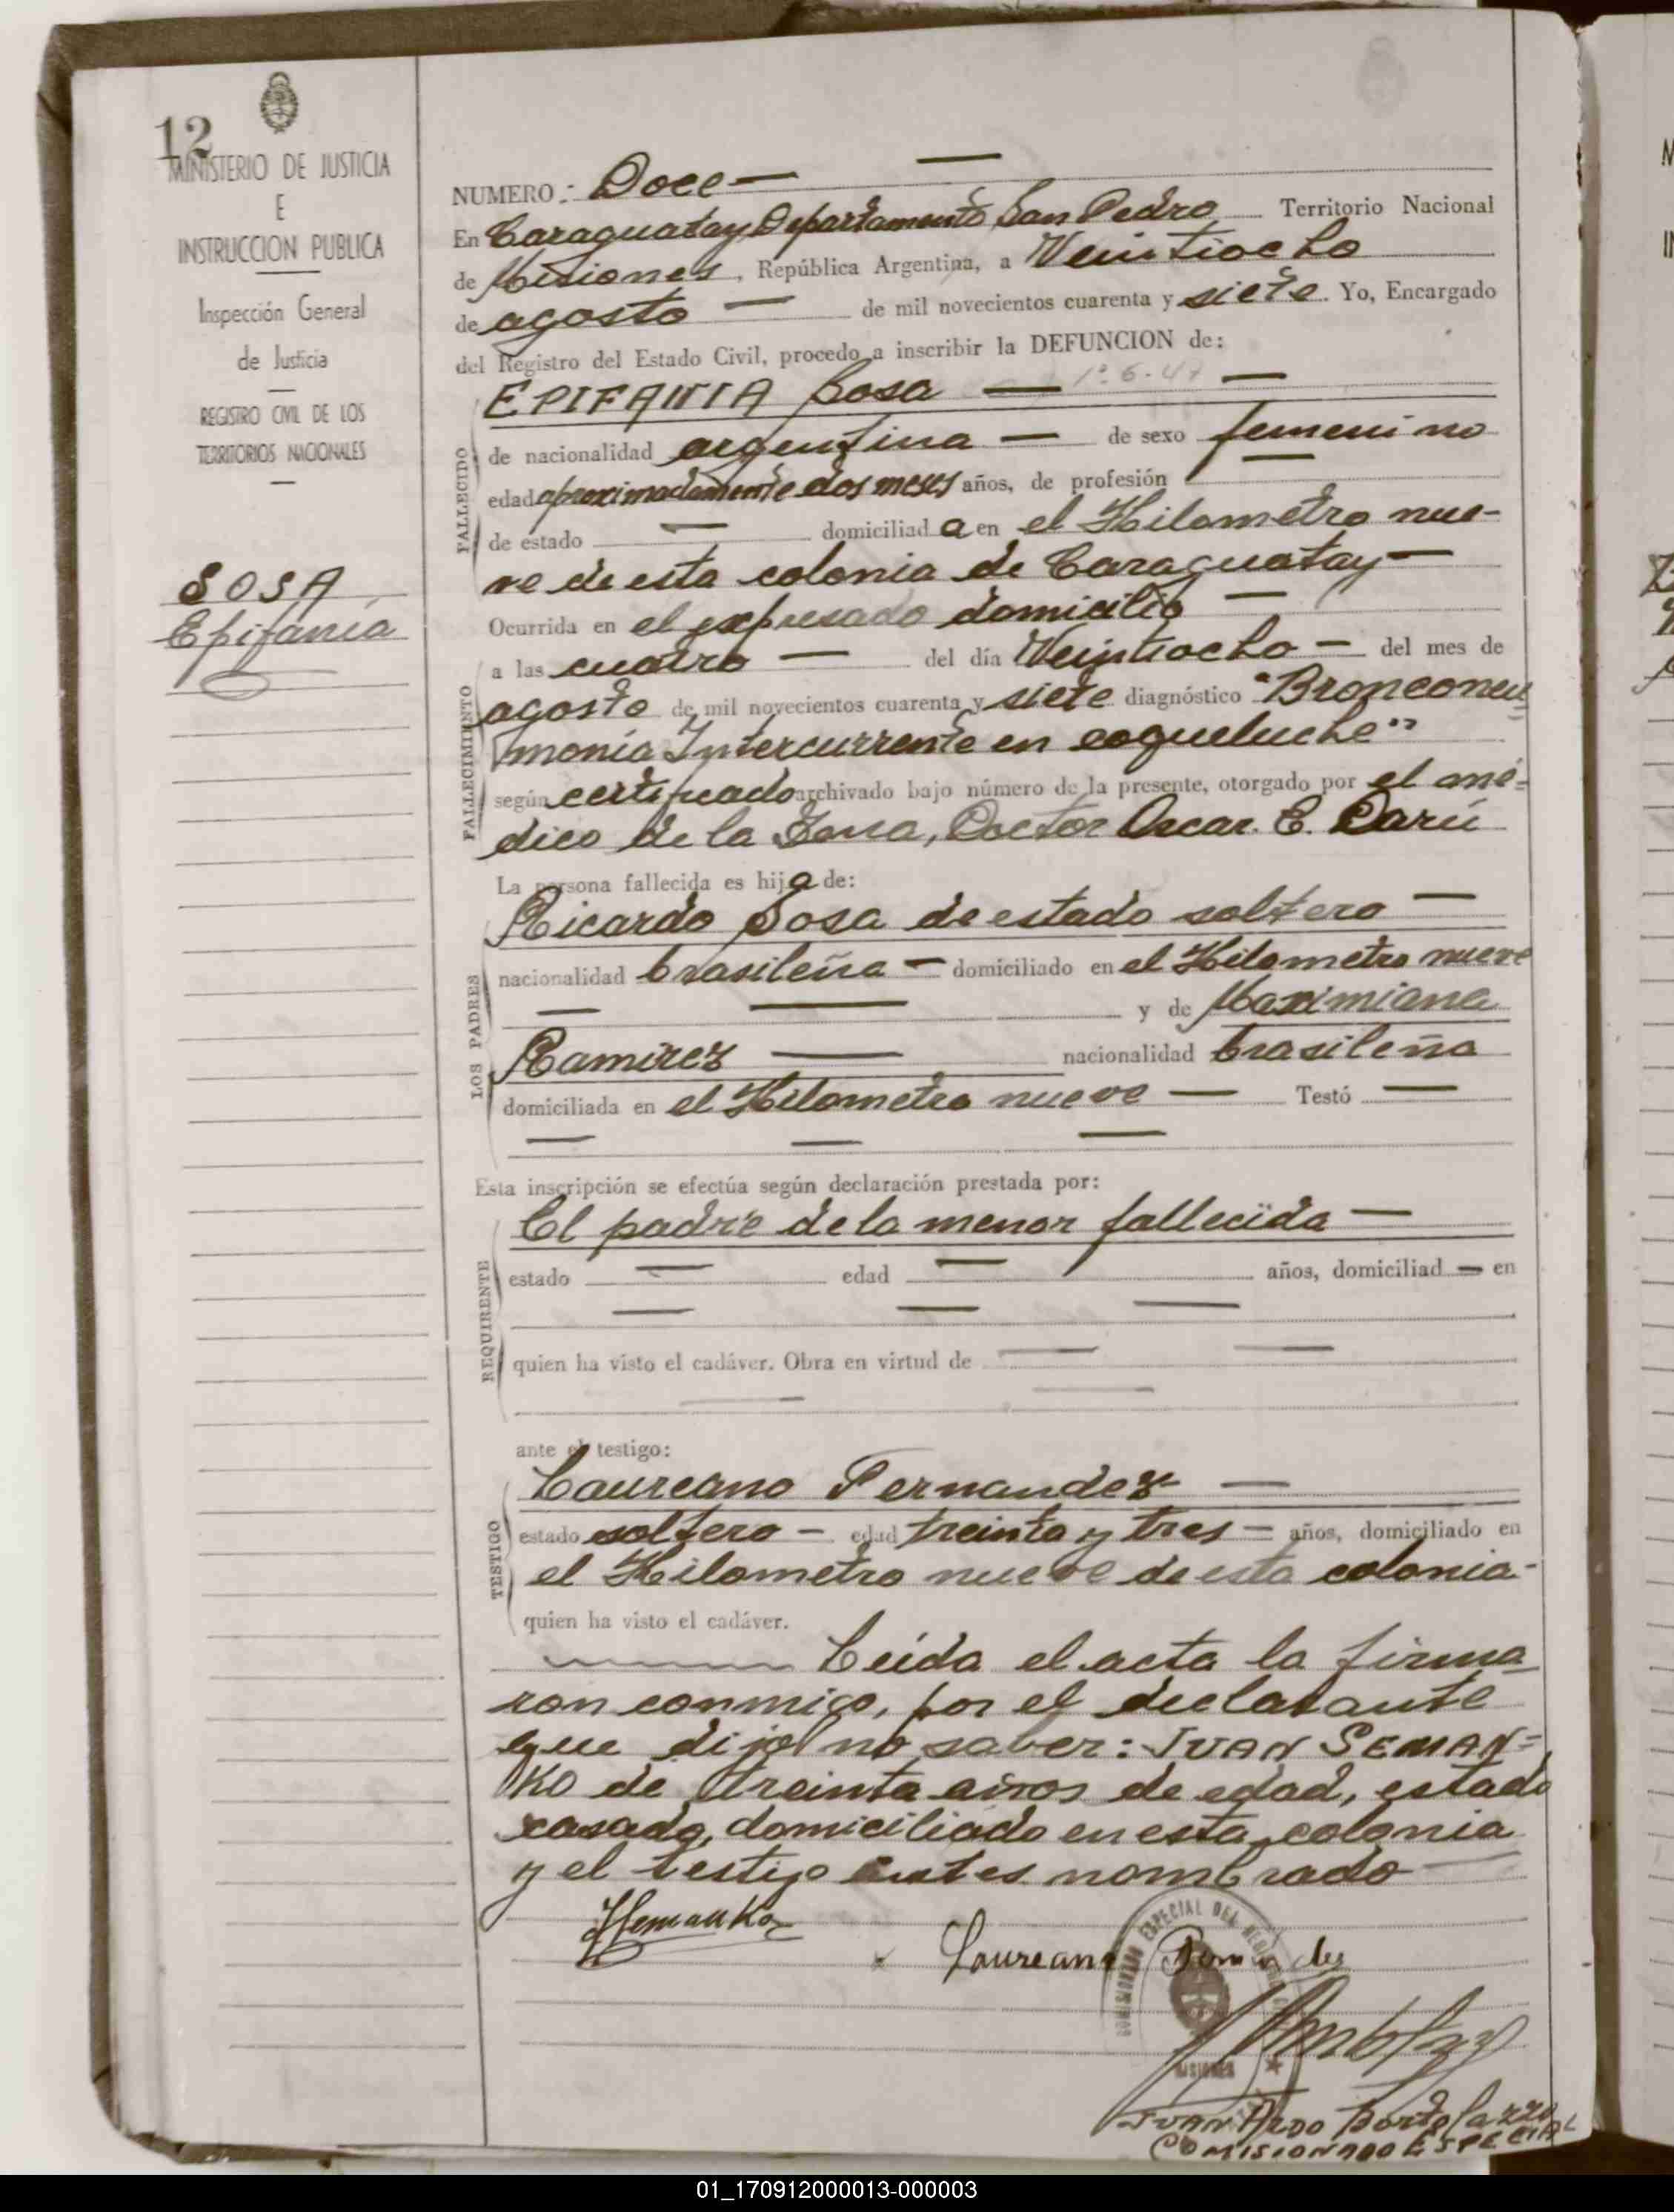 12
MINISTERIO DE JUSTICIA
E
INSTRUCCION PUBLICA
Inspección General
de Justicia
REGISTRO CIVIL DE LOS
TERRITORIOS NACIONALES
SOSA
Epifanía
NUMERO: Doce —
En Caraguatay Departamento San Pedro Territorio Nacional
de Misiones, República Argentina, a Veintiocho
de agosto — de mil novecientos cuarenta y siete. Yo, Encargado
del Registro del Estado Civil, procedo a inscribir la DEFUNCION de:
EPIFANIA Sosa — 1º-6-47 —
FALLECIDO
de nacionalidad argentina — de sexo femenino
edad aproximadamente dos meses años, de profesión —
de estado — domiciliada en el Kilometro nue-
ve de esta colonia de Caraguatay —
FALLECIMIENTO
Ocurrida en el expresado domicilio —
a las cuatro — del día Veintiocho — del mes de
agosto de mil novecientos cuarenta y siete diagnóstico "Bronconeu=
monía Intercurrente en coqueluche"
según certificado archivado bajo número de la presente, otorgado por el mé=
dico de la Zona, Doctor Oscar. C. Darú
LOS PADRES
La persona fallecida es hija de:
Ricardo Sosa de estado soltero —
nacionalidad brasileña — domiciliado en el Kilometro nueve
— — y de Maximiana
Ramirez — nacionalidad brasileña
domiciliada en el Kilometro nueve — Testó —
— — —
Esta inscripción se efectúa según declaración prestada por:
REQUIRENTE
El padre de la menor fallecida —
estado — edad — años, domiciliad — en
— — —
quien ha visto el cadáver. Obra en virtud de — —
— —
ante el testigo:
TESTIGO
Laureano Fernandez —
estado soltero — edad treinta y tres — años, domiciliado en
el Kilometro nueve de esta colonia-
quien ha visto el cadáver.
Leída el acta la firma
ron conmigo, por el declarante
que dijo no saber: JUAN SEMAN=
KO de treinta años de edad, estado
casado, domiciliado en esta colonia
y el testigo antes nombrado
JSemanko
Laureano Fernandes
COMISIONADO ESPECIAL DEL REGISTRO
MISIONES
JUAN ALDO Bortolazzo
COMISIONADO ESPECIAL
01_170912000013-000003